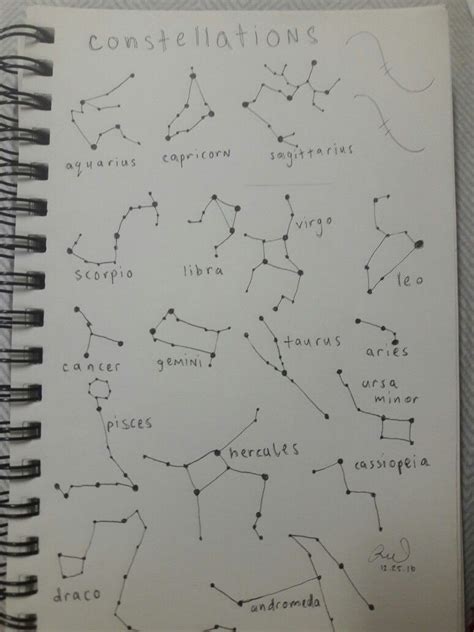 constellations
aquarius
capricorn
sagittarius
scorpio
libra
virgo
leo
cancer
gemini
taurus
aries
pisces
ursa
minor
hercules
cassiopeia
draco
andromeda
12.25.16